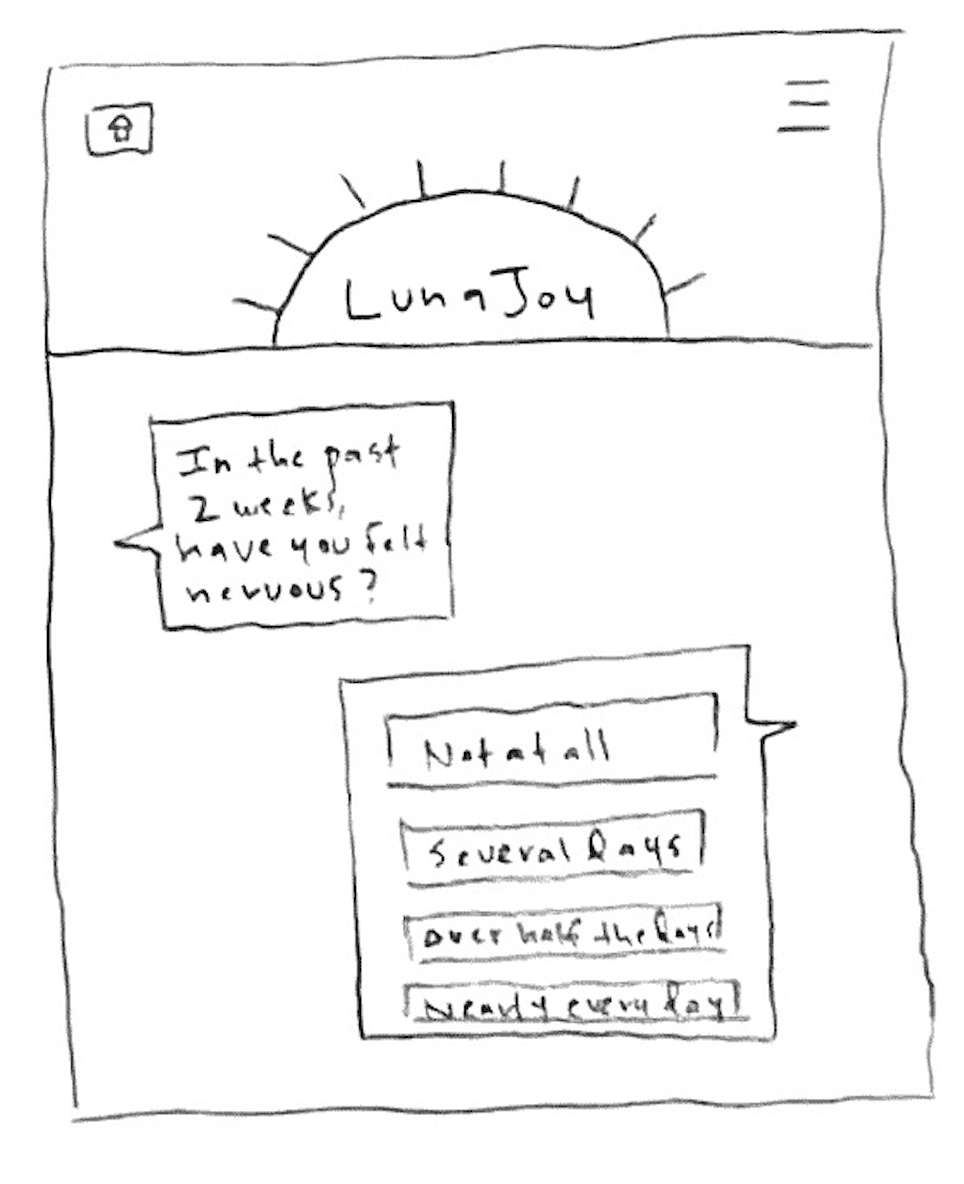 LunaJoy
In the past
2 weeks,
have you felt
nervous?
Not at all
Several days
over half the days
Nearly every day